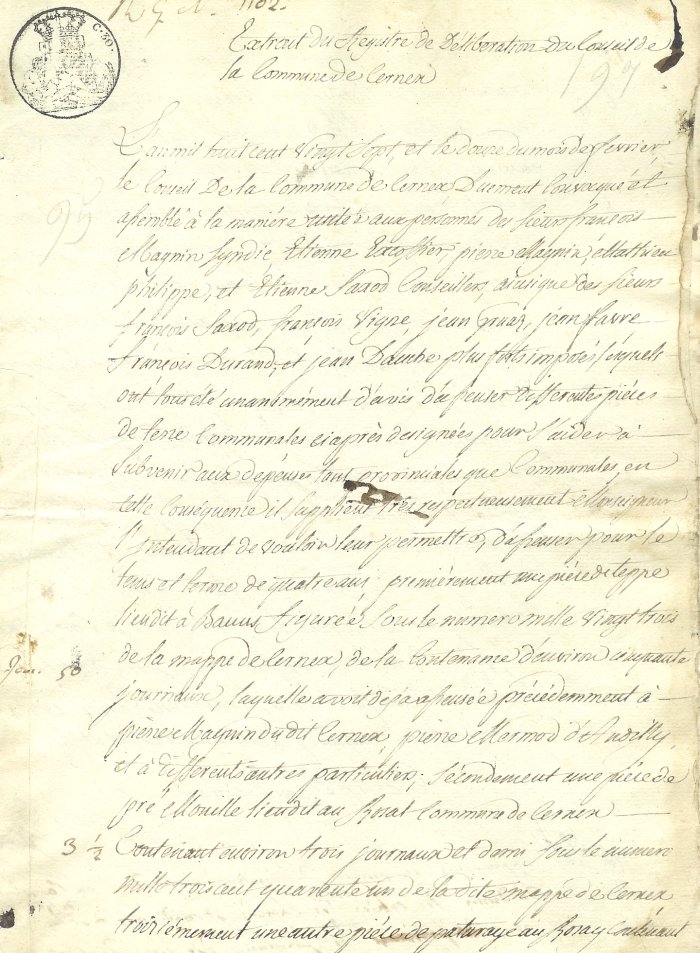 1102.
C. 30.
Extrait du Registre de Déliberation du Conseil de
la Commune de Cernex
197
L'an mil huit cent vingt sept, et le douze du mois de fevrier
le Conseil De la Commune de Cernex Duement Convoqué et
assemblé à la maniére usitée aux personnes des sieurs françois
Magnin Syndic, Etienne pierre Magnin, Mathieu
philippe, et Etienne Saxod Conseillers, ainsi que des sieurs
françois Saxod, françois Vigne, jean Gruaz, jean favre
françois Durand, et jean plus forts imposés, lesquels
ont tous été unanimément d'avis d'afenser differentes piéces
de terre Communales ciaprès designées pour s'aider à
Subvenir aux depenses tant provinciales que Communales, en
telle Conséquence il supplient très respectueusement Monseigneur
l'intendant de vouloir leur permettre, d'afenser pour le
tems et terme de quatre ans; premiérement une piéce de teppe
lieudit à Baum figurée Sous le numero mille vingt trois
de la mappe de Cernex, de la Contenance d'environ cinquante
Jour. 50
journaux, laquelle avoit deja afensée précédemment à
pierre Magnin dudit Cernex, pierre Mermod d'Andilly
et à differents autres particuliers; Sécondement une piéce de
pré Mouille lieudit au Rosat Commune de Cernex
3 1/2
Contenant environ trois journaux et demi Sous le numero
mille trois cent quarante un de la dite mappe de Cernex
troisiémement une autre piéce de paturage au Rosay Contenant